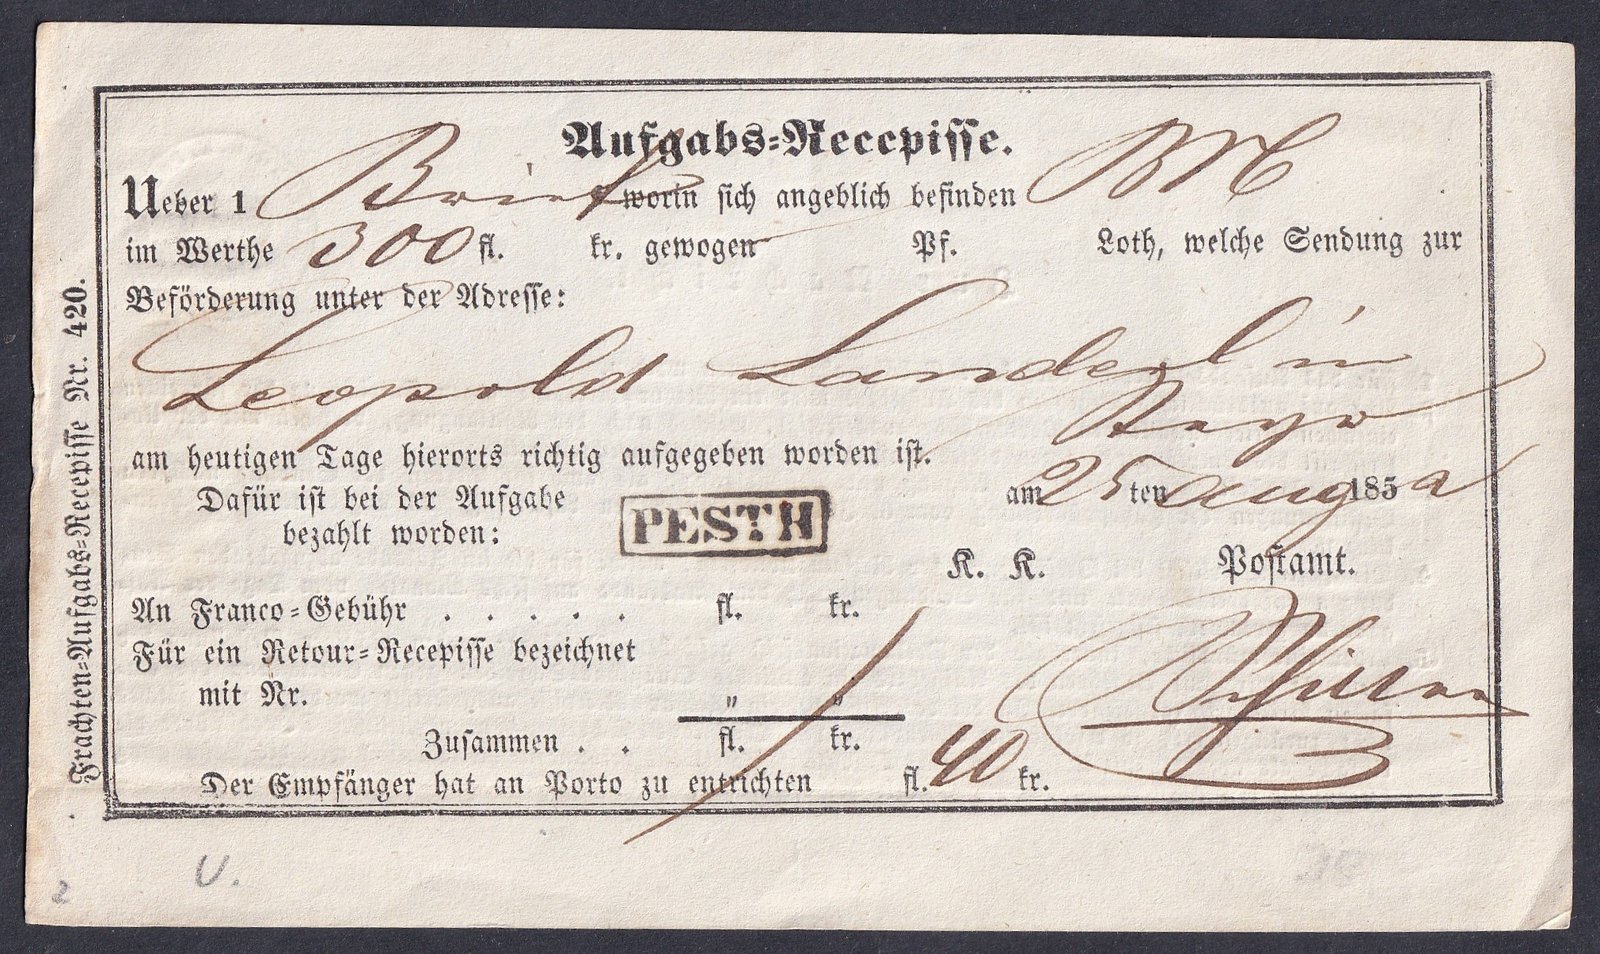 Aufgabs-Recepisse.
Ueber 1 Brief worin sich angeblich befinden BN
im Werthe 300 fl. kr. gewogen Pf. Loth, welche Sendung zur
Beförderung unter der Adresse:
Leopold Landerl in
Steyr
am heutigen Tage hierorts richtig aufgegeben worden ist.
Dafür ist bei der Aufgabe am 25 ten Aug 1852
bezahlt worden:
PESTH
K. K. Postamt.
An Franco-Gebühr . . . . . fl. kr.
Für ein Retour-Recepisse bezeichnet
mit Nr. " "
Zusammen . . fl. kr.
Der Empfänger hat an Porto zu entrichten fl. 40 kr.
Frachten-Aufgabs-Recepisse Nr. 420.
U.
2